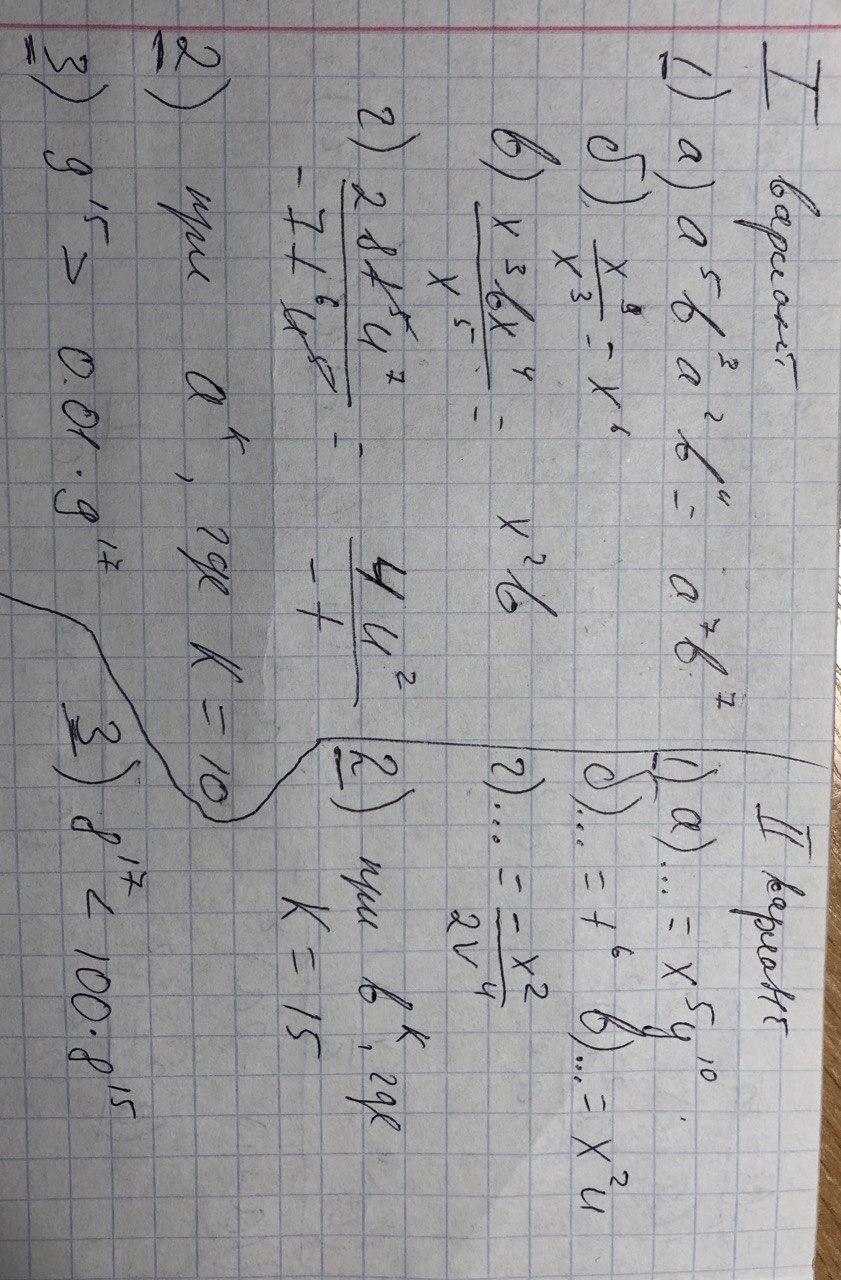 I вариант
1) а) a⁵b³a²b⁴ = a⁷b⁷
б) x⁹/x³ = x⁶
в) x³bx⁴/x⁵ = x²b
г) 28t⁵u⁷/-7t⁶u⁵ = 4u²/-t
2) при aᵏ, где K = 10
3) 9¹⁵ > 0.01·9¹⁷
II вариант
1) а)... = x⁵y¹⁰
б)... = t⁶ в)... = x²u
г)... = -x²/2v⁴
2) при bᵏ, где
K = 15
3) 8¹⁷ < 100·8¹⁵